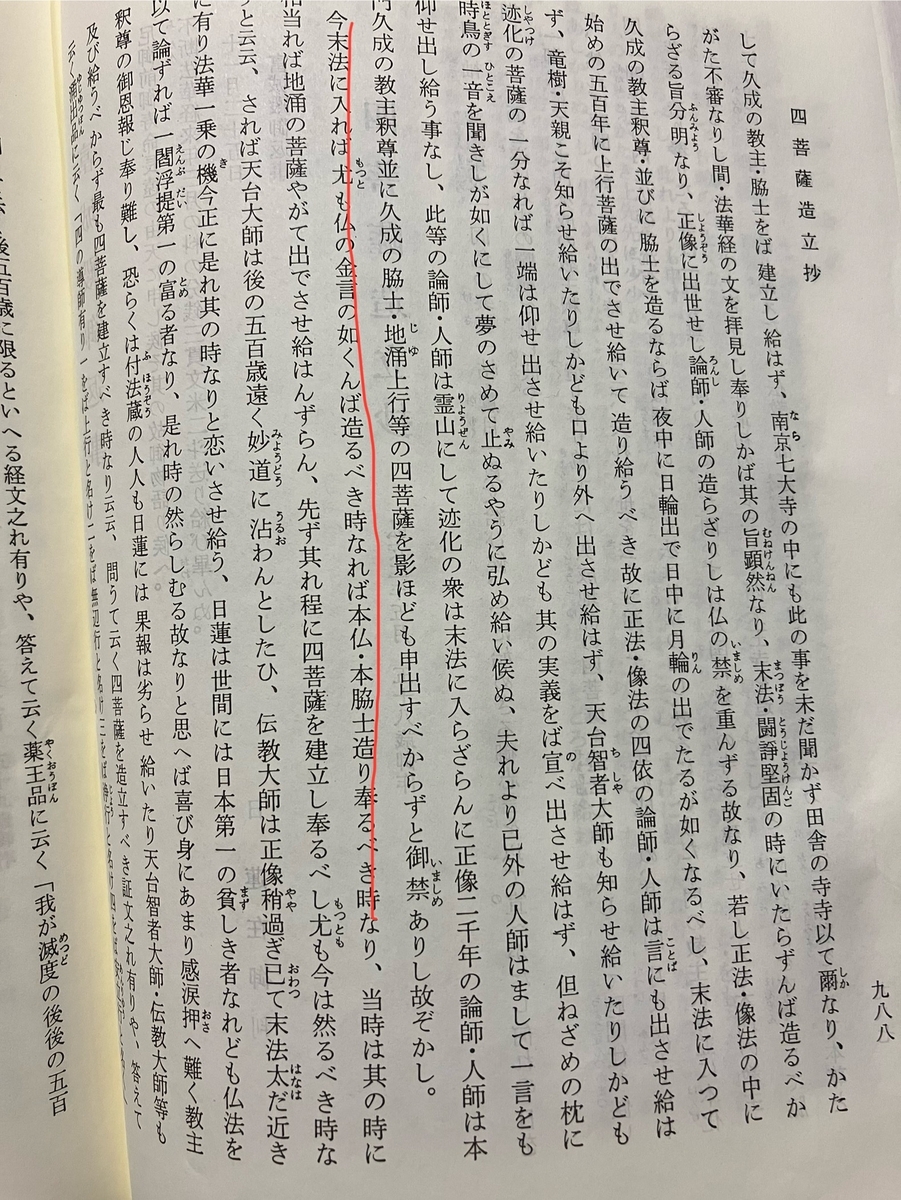 四菩薩造立抄
九八八
して久成の教主・脇士をば建立し給はず、南京七大寺の中にも此の事を未だ聞かず田舎の寺寺以て爾なり、かた
がた不審なりし間・法華経の文を拝見し奉りしかば其の旨顕然なり、末法・闘諍堅固の時にいたらずんば造るべか
らざる旨分明なり、正像に出世せし論師・人師の造らざりしは仏の禁を重んずる故なり、若し正法・像法の中に
久成の教主釈尊・並びに脇士を造るならば夜中に日輪出で日中に月輪の出でたるが如くなるべし、末法に入つて
始めの五百年に上行菩薩の出でさせ給いて造り給うべき故に正法・像法の四依の論師・人師は言にも出させ給は
ず、竜樹・天親こそ知らせ給いたりしかども口より外へ出させ給はず、天台智者大師も知らせ給いたりしかども
迹化の菩薩の一分なれば一端は仰せ出させ給いたりしかども其の実義をば宣べ出させ給はず、但ねざめの枕に
時鳥の一音を聞きしが如くにして夢のさめて止ぬるやうに弘め給い候ぬ、夫れより已外の人師はまして一言をも
仰せ出し給う事なし、此等の論師・人師は霊山にして迹化の衆は末法に入らざらんに正像二千年の論師・人師は本
門久成の教主釈尊並に久成の脇士・地涌上行等の四菩薩を影ほども申出すべからずと御禁ありし故ぞかし。
今末法に入れば尤も仏の金言の如くんば造るべき時なれば本仏・本脇士造り奉るべき時なり、当時は其の時に
相当れば地涌の菩薩やがて出でさせ給はんずらん、先ず其れ程に四菩薩を建立し奉るべし尤も今は然るべき時な
りと云云、されば天台大師は後の五百歳遠く妙道に沾わんとしたひ、伝教大師は正像稍過ぎ已て末法太だ近き
に有り法華一乗の機今正に是れ其の時なりと恋いさせ給う、日蓮は世間には日本第一の貧しき者なれども仏法を
以て論ずれば一閻浮提第一の富る者なり、是れ時の然らしむる故なりと思へば喜び身にあまり感涙押へ難く教主
釈尊の御恩報じ奉り難し、恐らくは付法蔵の人人も日蓮には果報は劣らせ給いたり天台智者大師・伝教大師等も
及び給うべからず最も四菩薩を建立すべき時なり云云、問うて云く四菩薩を造立すべき証文之れ有りや、答えて
云く涌出品に云く「四の導師有り一をば上行と名け二をば無辺行と名け三をば浄行と名け四をば
後五百歳に限るといへる経文之れ有りや、答えて云く薬王品に云く「我が滅度の後後の五百